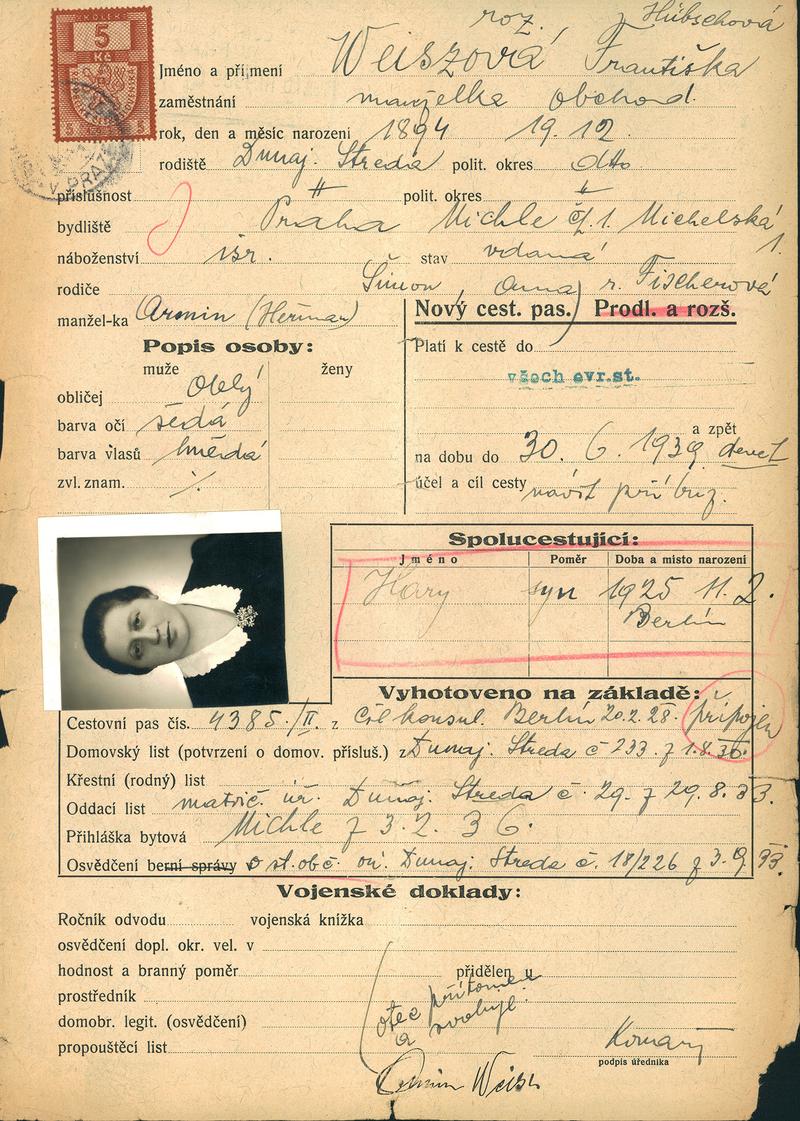 roz. Hübschová
KOLEK
5
Kč
V PRAZE
Jméno a příjmení Weiszová Františka
zaměstnání manželka obchod.
rok, den a měsíc narození 1894 19.12.
rodiště Dunaj. Streda polit. okres dtto
příslušnost " polit. okres "
bydliště Praha Michle čp. 1. Michelská 1.
náboženství isr. stav vdaná
rodiče Šimon, Anna r. Fischerová
manžel-ka Armin (Heřman)
Nový cest. pas.) Prodl. a rozš.
Popis osoby:
muže ženy
obličej Oblý
barva očí šedá
barva vlasů hnědá
zvl. znam. ./.
Platí k cestě do
všech evr.st.
a zpět
na dobu do 30. 6. 1939
účel a cíl cesty návšt příbuz.
Spolucestující:
Jméno Poměr Doba a místo narození
Hary syn 1925 11.2.
Berlín
Vyhotoveno na základě:
Cestovní pas čís. 4385./II. z Čsl konsul. Berlín 20.2.28. připojen
Domovský list (potvrzení o domov. přísluš.) z Dunaj. Streda č 233. z 1.8.30.
Křestní (rodný) list
Oddací list matrič. úř. Dunaj. Streda č. 29. z 29.8.33.
Přihláška bytová Michle z 3.2.36.
Osvědčení berní správy o st. obč. Dunaj. Streda č. 18/226 z 3.9.33.
Vojenské doklady:
Ročník odvodu vojenská knížka
osvědčení dopl. okr. vel. v
hodnost a branný poměr přidělen u
prostředník
otec přítomen
domobr. legit. (osvědčení)
a svoluje.
propouštěcí list
podpis úředníka
Armin Weisz